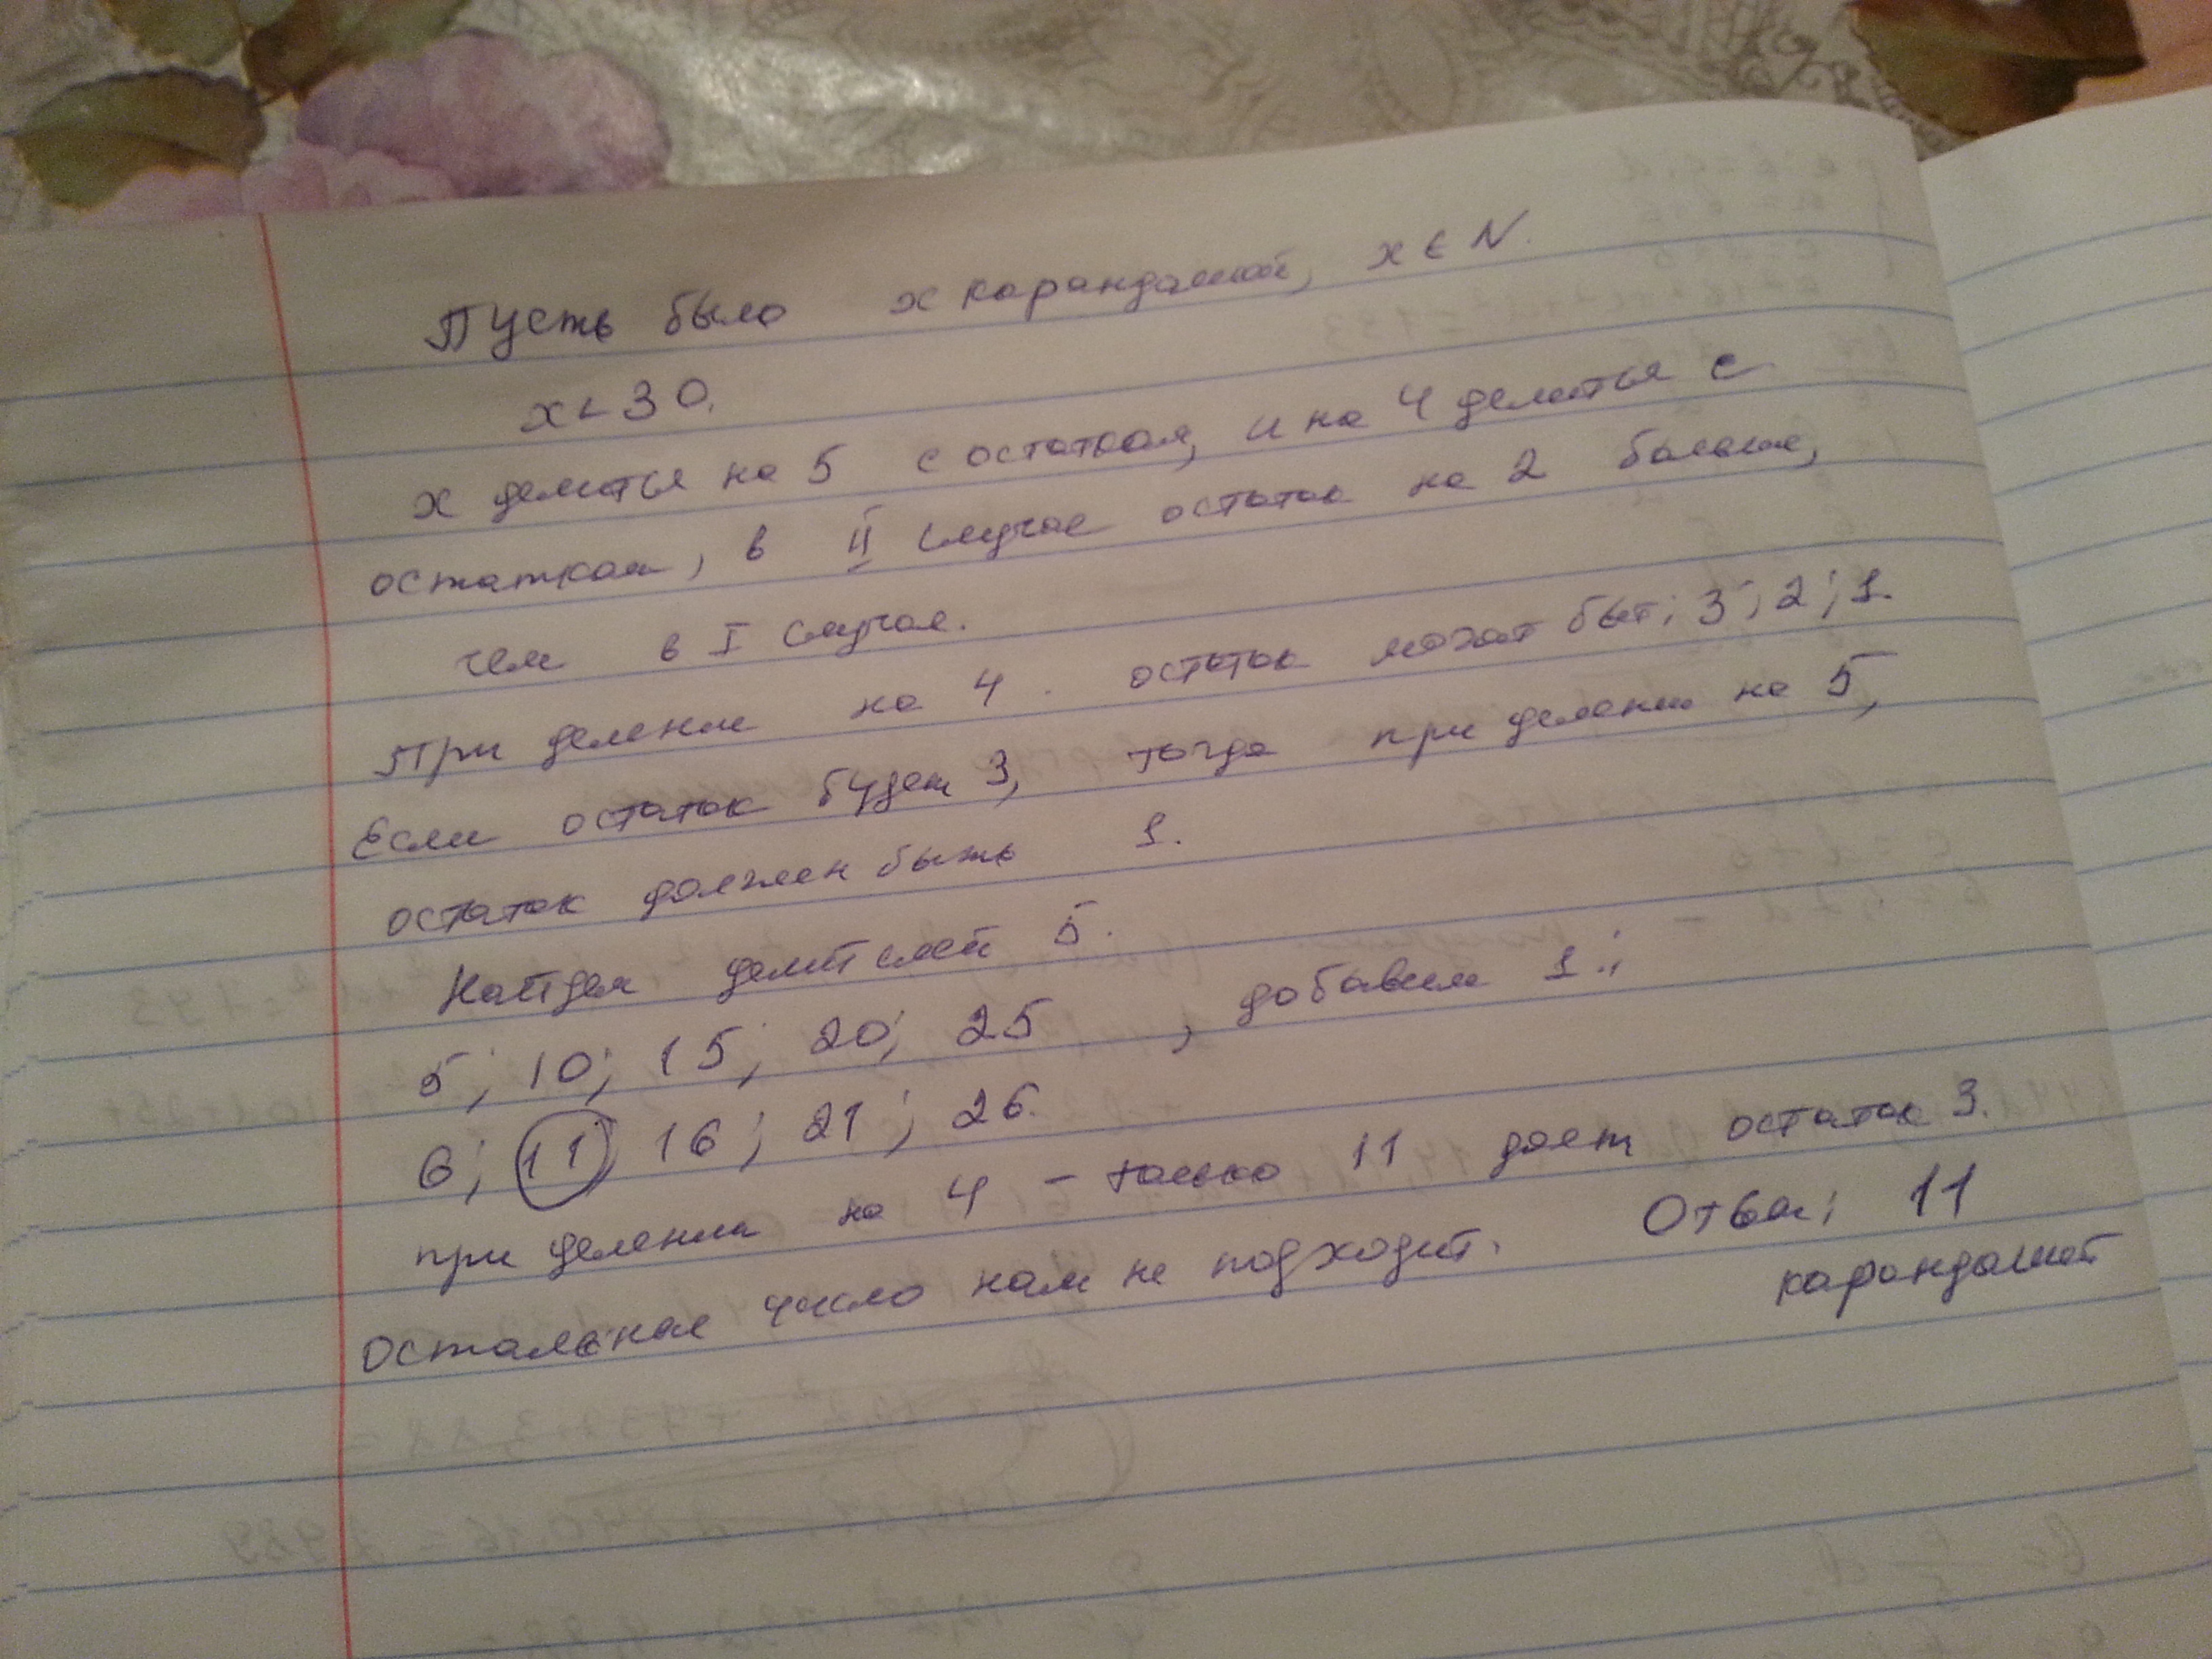 Пусть было x карандашей, x ∈ N.
x < 30.
x делиться на 5 с остатком, и на 4 делиться с
остатком, в II случае остаток на 2 больше,
чем в I случае.
При делении на 4 остаток может быт: 3; 2; 1.
Если остаток будет 3, тогда при делении на 5,
остаток должен быть 1.
Найдем делителей 5.
5; 10; 15; 20; 25, добавим 1:
6; 11; 16; 21; 26.
при делении на 4 – только 11 дает остаток 3.
Остальное число нам не подходит. Ответ: 11
карандашей